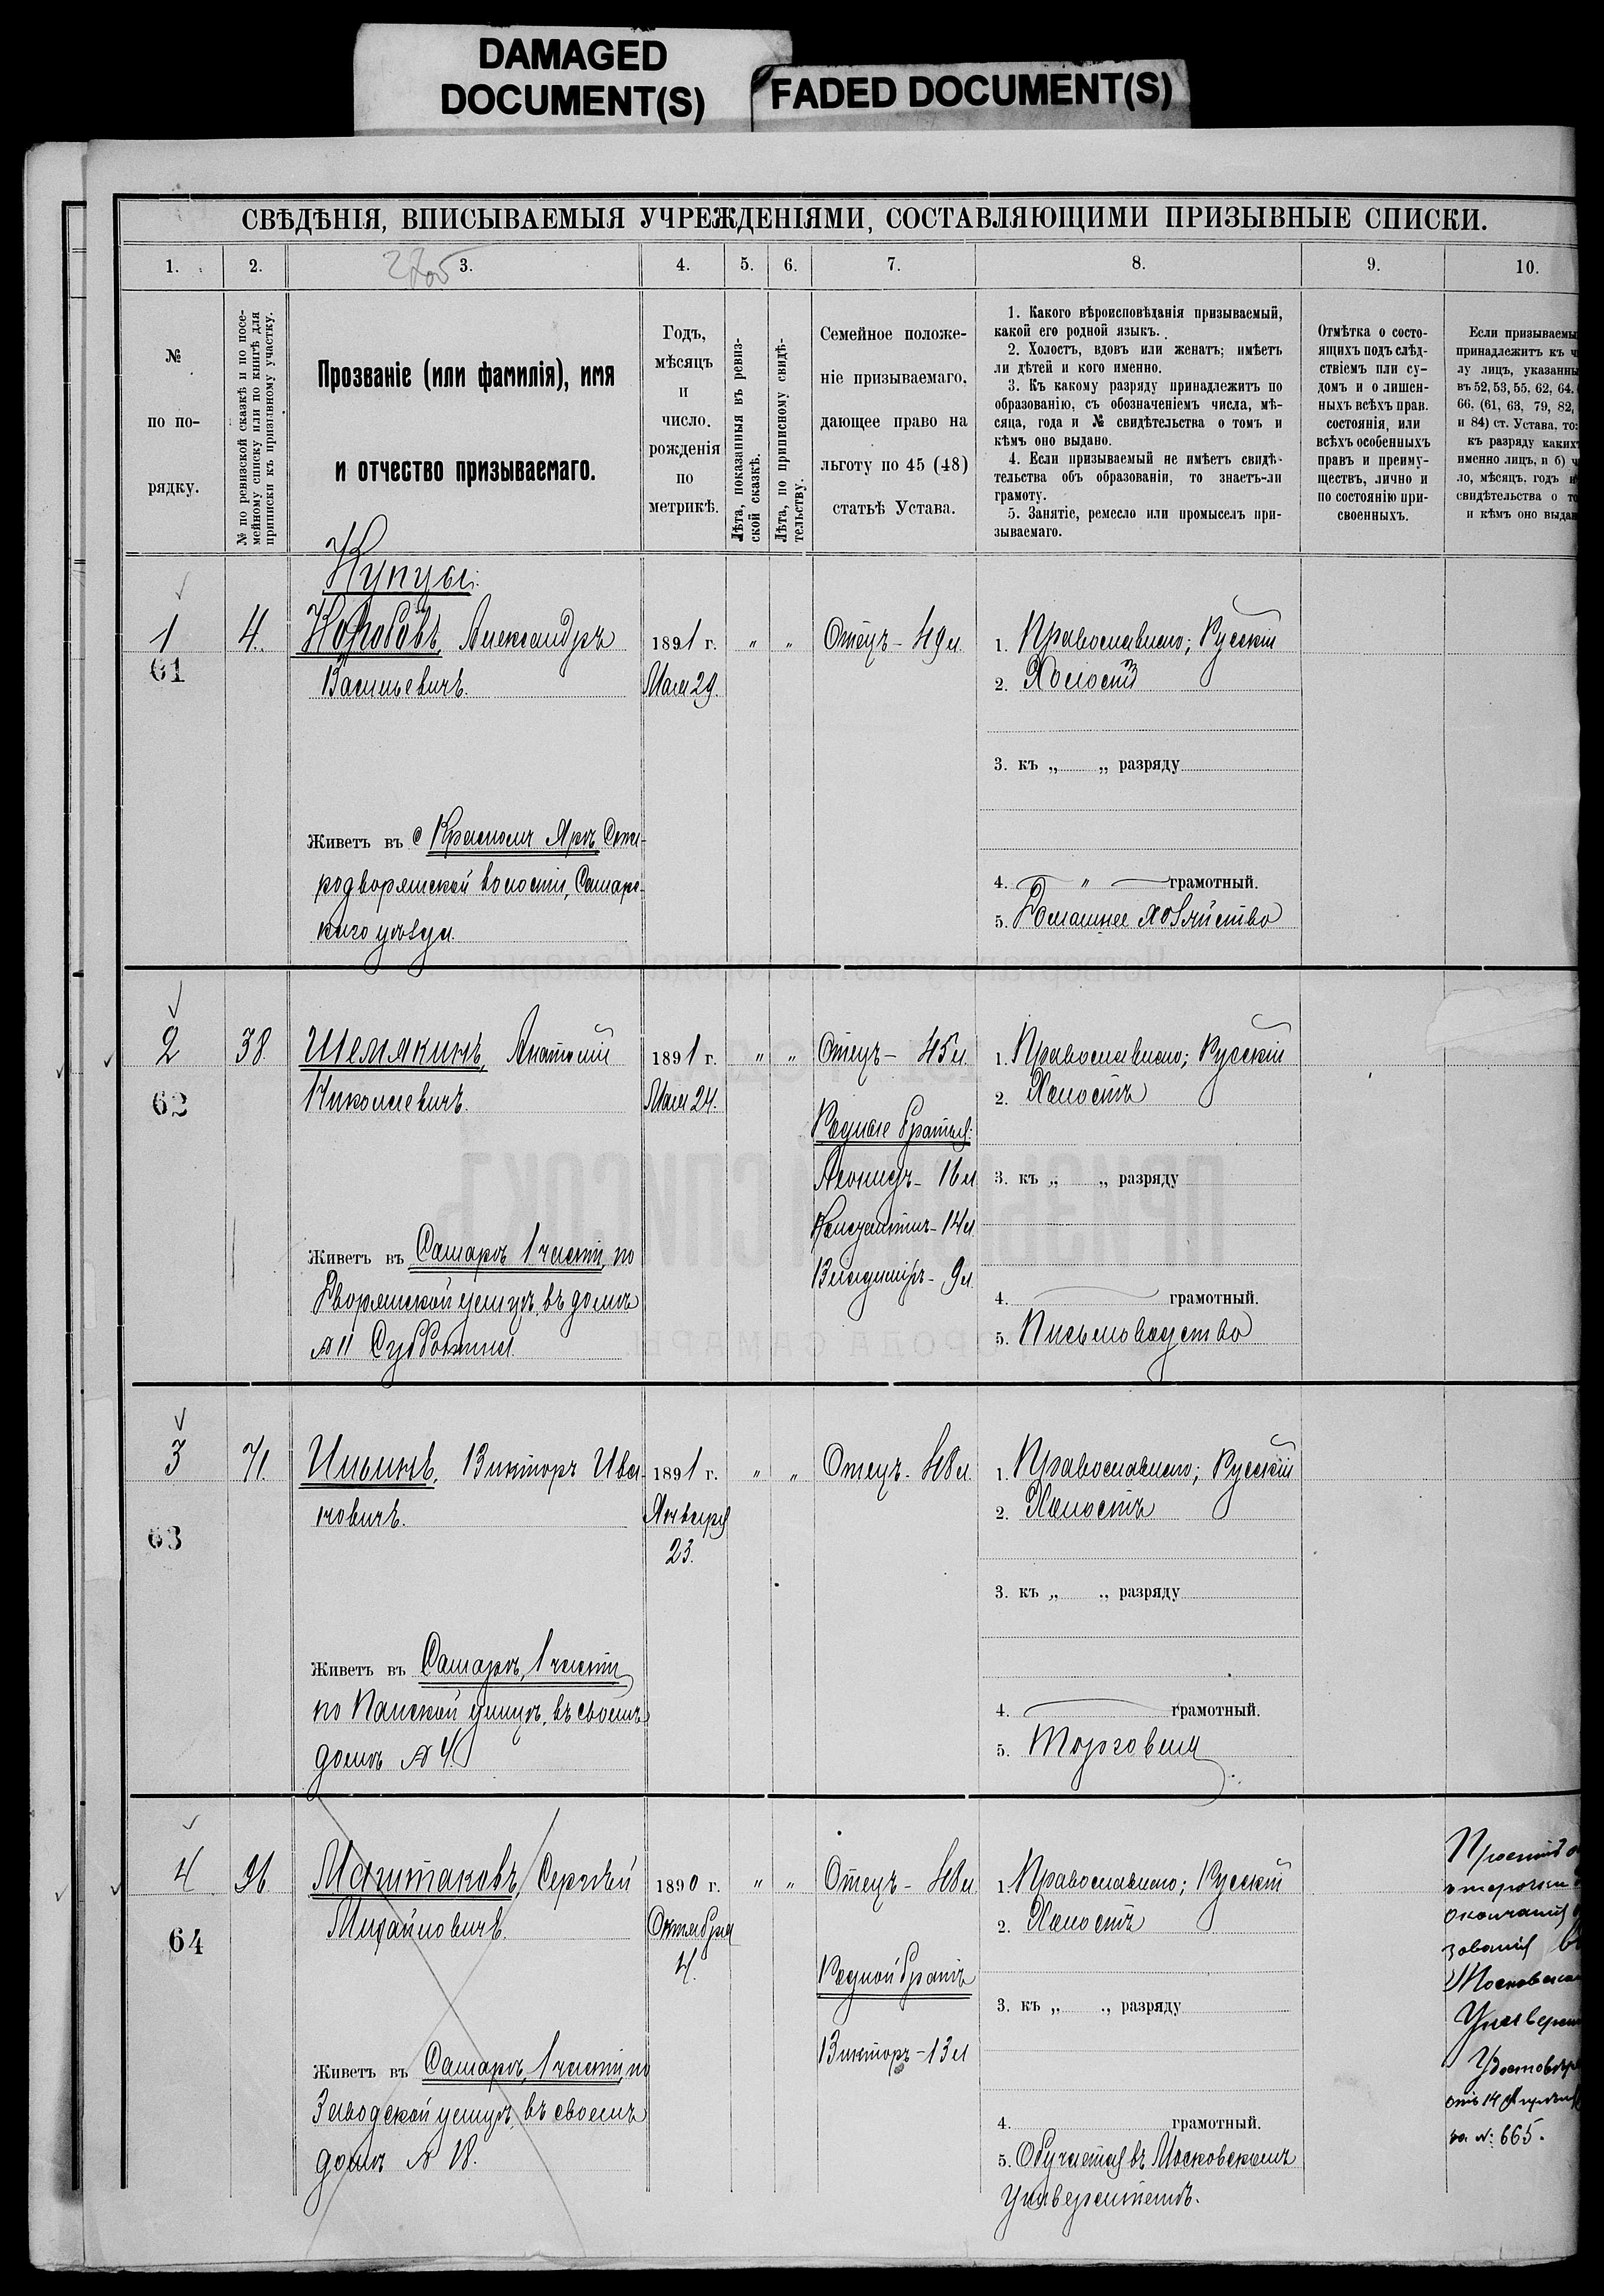 DAMAGED
DOCUMENT(S)
FADED DOCUMENT(S)
СВѢДѢНІЯ, ВПИСЫВАЕМЫЯ УЧРЕЖДЕНІЯМИ, СОСТАВЛЯЮЩИМИ ПРИЗЫВНЫЕ СПИСКИ.
1.
2.
3.
4.
5.
6.
7.
8.
9.
10.
№
по по-
рядку.
№ по ревизской сказкѣ и по посе-
мейному списку или по книгѣ для
приписки къ призывному участку.
Прозваніе (или фамилія), имя
и отчество призываемаго.
Годъ,
мѣсяцъ
и
число.
рожденія
по
метрикѣ.
Лѣта, показанныя въ ревиз-
ской сказкѣ.
Лѣта, по приписному свидѣ-
тельству.
Семейное положе-
ніе призываемаго,
дающее право на
льготу по 45 (48)
статьѣ Устава.
1. Какого вѣроисповѣданія призываемый,
какой его родной языкъ.
2. Холостъ, вдовъ или женатъ; имѣетъ
ли дѣтей и кого именно.
3. Къ какому разряду принадлежитъ по
образованію, съ обозначеніемъ числа, мѣ-
сяца, года и № свидѣтельства о томъ и
кѣмъ оно выдано.
4. Если призываемый не имѣетъ свидѣ-
тельства объ образованіи, то знаетъ-ли
грамоту.
5. Занятіе, ремесло или промыселъ при-
зываемаго.
Отмѣтка о состо-
ящихъ подъ слѣд-
ствіемъ или су-
домъ и о лишен-
ныхъ всѣхъ прав.
состоянія, или
всѣхъ особенныхъ
правъ и преиму-
ществъ, лично и
по состоянію при-
своенныхъ.
Если призываемы
принадлежитъ къ ч
лу лицъ, указанны
въ 52, 53, 55, 62, 64.
66. (61, 63, 79, 82,
и 84) ст. Устава, то:
къ разряду какихъ
именно лицъ, и б) ч
ло, мѣсяцъ, годъ и
свидѣтельства о то
и кѣмъ оно выдан
Купцы:
1
61
4.
Коробовъ, Александръ
Васильевичъ.
Живетъ въ с Красномъ Ярѣ Ста-
родворянской волости, Самарс-
каго уѣзда.
1891 г.
Мая 29.
„ „
Отецъ - 49 л.
1. Православнаго; Русскій
2. Холостъ
3. къ „ „ разряду
4. „ грамотный.
5. Домашнее хозяйство
2
62
38.
Шемякинъ, Анатолій
Николаевичъ.
Живетъ въ Самарѣ 1 части, по
Дворянской улицѣ, въ домѣ
№ 11 Субботина.
1891 г.
Мая 24.
„ „
Отецъ - 45 л.
Родные братья:
Леонидъ - 16 л.
Константинъ - 14 л.
Владиміръ - 9 л.
1. Православнаго; Русскій
2. Холостъ
3. къ „ „ разряду
4. грамотный.
5. Письмоводство
3
63
71.
Ильинъ, Викторъ Ива-
новичъ.
Живетъ въ Самарѣ, 1 части
по Панской улицѣ, въ своемъ
домѣ № 4.
1891 г.
Января
23.
„ „
Отецъ - 48 л.
1. Православнаго; Русскій
2. Холостъ
3. къ „ „ разряду
4. грамотный.
5. Торговля
4
64
Маштаковъ, Сергѣй
Михайловичъ.
Живетъ въ Самарѣ, 1 части, по
Заводской улицѣ, въ своемъ
домѣ №
1890 г.
Октября
4.
„ „
Отецъ - 48 л.
Родной братъ
Викторъ - 13 л.
1. Православнаго; Русскій
2. Холостъ
3. къ „ „ разряду
4. грамотный.
5. Обучается въ Московскомъ
Университетѣ.
Проситъ
окончанія
зованія
Московск
Универси
Удостовѣр
отъ 14
за №: 665.